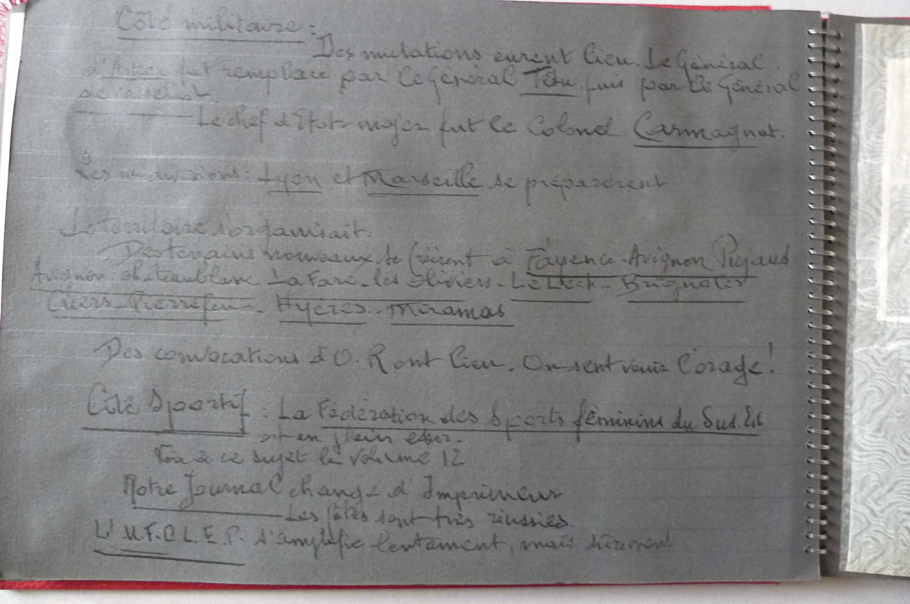 Côté militaire :
Des mutations eurent lieu. Le Général
d'Astier fut remplacé par le Général Têtu puis par le Général
Le chef d'Etat-major fut le Colonel Carmagnat.
Les : Lyon et Marseille se préparèrent
Le territoire s'organisait.
Des terrains nouveaux se créèrent à Fayence - Avignon Pujaud
Avignon Chateaublanc La Fare-les Oliviers - Le Lech - Brignoles
Cuers-Pierrefeu - Hyères - Miramas
Des convocations d'O.R ont lieu. On sent venir l'orage !
Côté Sportif : La Fédération des Sports féminins du Sud.Est
est en plein essor.
Voir à ce sujet le volume 12
Notre Journal change d'Imprimeur
Les fêtes sont très réussies.
L'U.F.O.L.E.P. s'amplifie lentement, mais sûrement